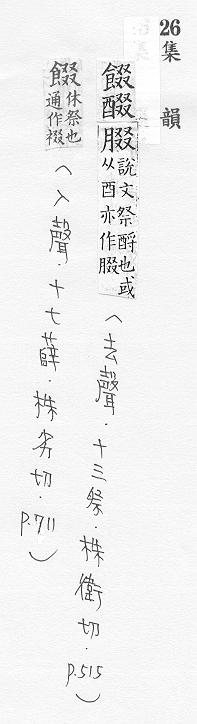 26集 韻
餟醊腏說文祭酹也或从酉亦作腏(去聲.十三祭.株衛切.p.515)
餟休祭也通作裰(入聲.十七薛.株劣切.p.711)